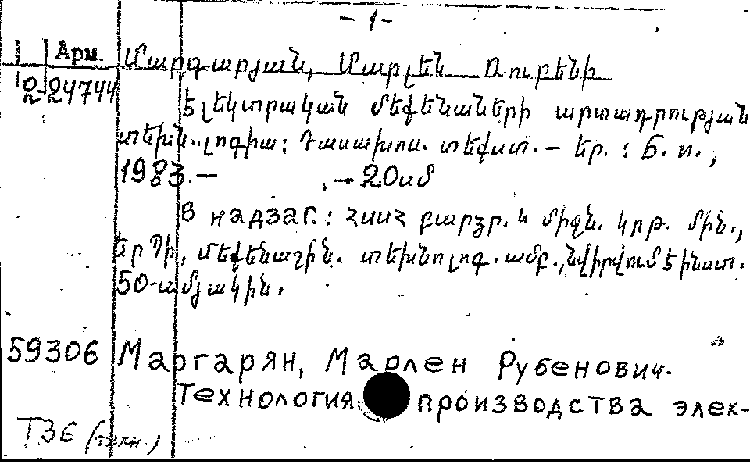 - 1 -
Арм
Մարգարյան, Մարլեն Ռուբենի
Զ-24744
Էլեկտրական մեքենաների արտադրության
տեխնոլոգիա: Դասախոս. տեքստ. - Եր. : Б. и.,
1983. - , - 20սմ
В надзаг.: ՀՍՍՀ բարձր. և միջն. կրթ. մին.,
ԵրՊԻ, մեքենաշին. տեխնոլոգ. ամբ., նվիրվում է ինստ.
50-ամյակին.
59306 Маргарян, Марлен Рубенович.
Технология производства элек-
Т36